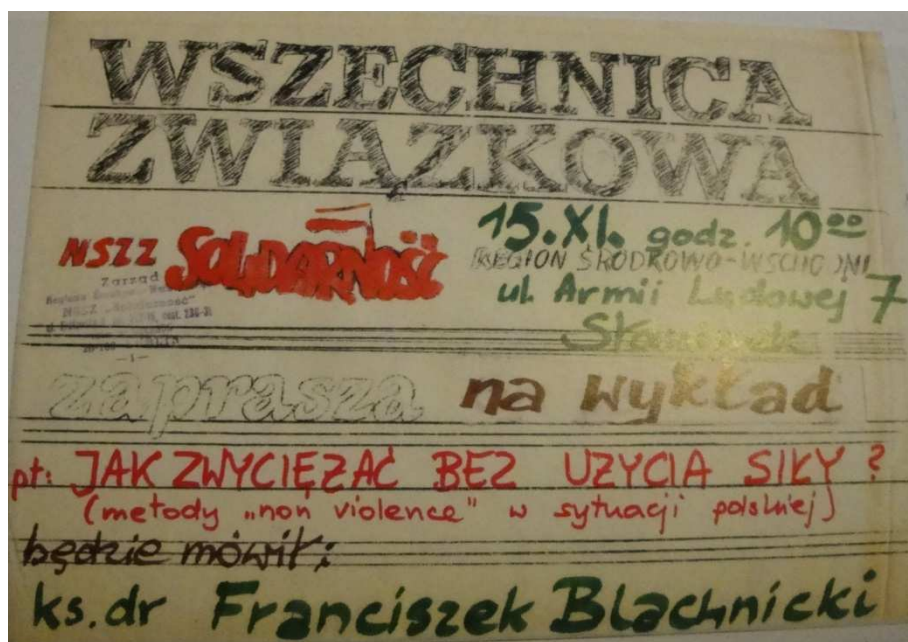 WSZECHNICA
ZWIĄZKOWA
NSZZ SOLIDARNOŚĆ
15.XI. godz. 10⁰⁰
REGION ŚRODKOWO-WSCHODNI
ul. Armii Ludowej 7
Zarząd
NSZZ „Solidarność"
zaprasza na wykład
pt: JAK ZWYCIĘŻAĆ BEZ UŻYCIA SIŁY?
(metody „non violence" w sytuacji polskiej)
będzie mówił:
ks. dr Franciszek Blachnicki